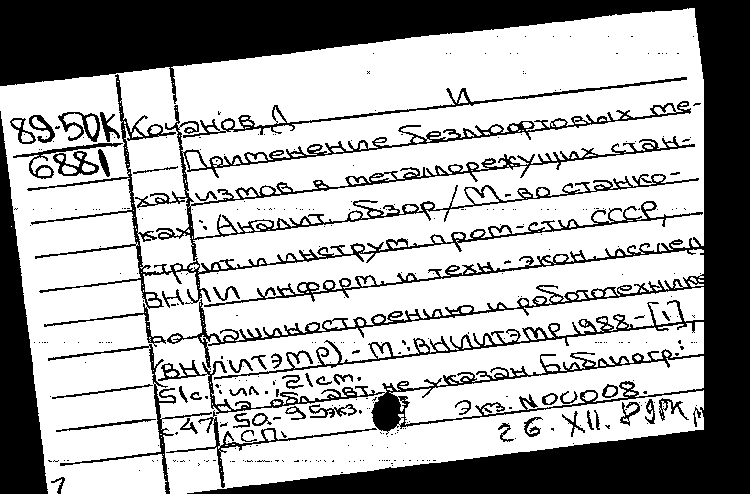 89-50К Кочанов, Д И
6881 Применение безлюфтовых ме-
ханизмов в металлорежущих стан-
ках: Аналит. обзор / М-во станко-
строит. и инструм. пром-сти СССР,
ВНИИ информ. и техн.-экон. исслед.
по машиностроению и робототехнике
(ВНИИТЭМР). - М.: ВНИИТЭМР, 1988. - [1],
51с.: ил.; 21см.
На обл. авт. не указан. Библиогр.:
с. 47-50. - 95экз. Экз. N00008.
ДСП. 26. XII.